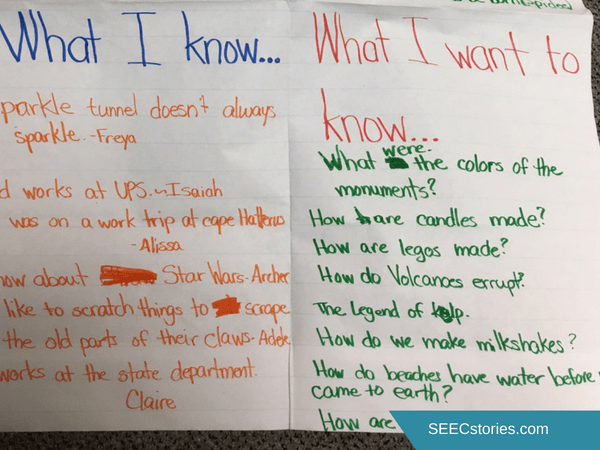 What I know...
parkle tunnel doesn't always
sparkle. -Freya
d works at UPS. ~Isaiah
was on a work trip at cape Hatteras
- Alissa
now about Star Wars- Archer
like to scratch things to scrape
the old parts of their claws- Adele
works at the state department.
Claire
What I want to
know...
were
What the colors of the
monuments?
How are candles made?
How are legos made?
How do Volcanoes errupt?
The Legend of
How do we make milkshakes?
How do beaches have water before
came to earth?
How are
SEECstories.com